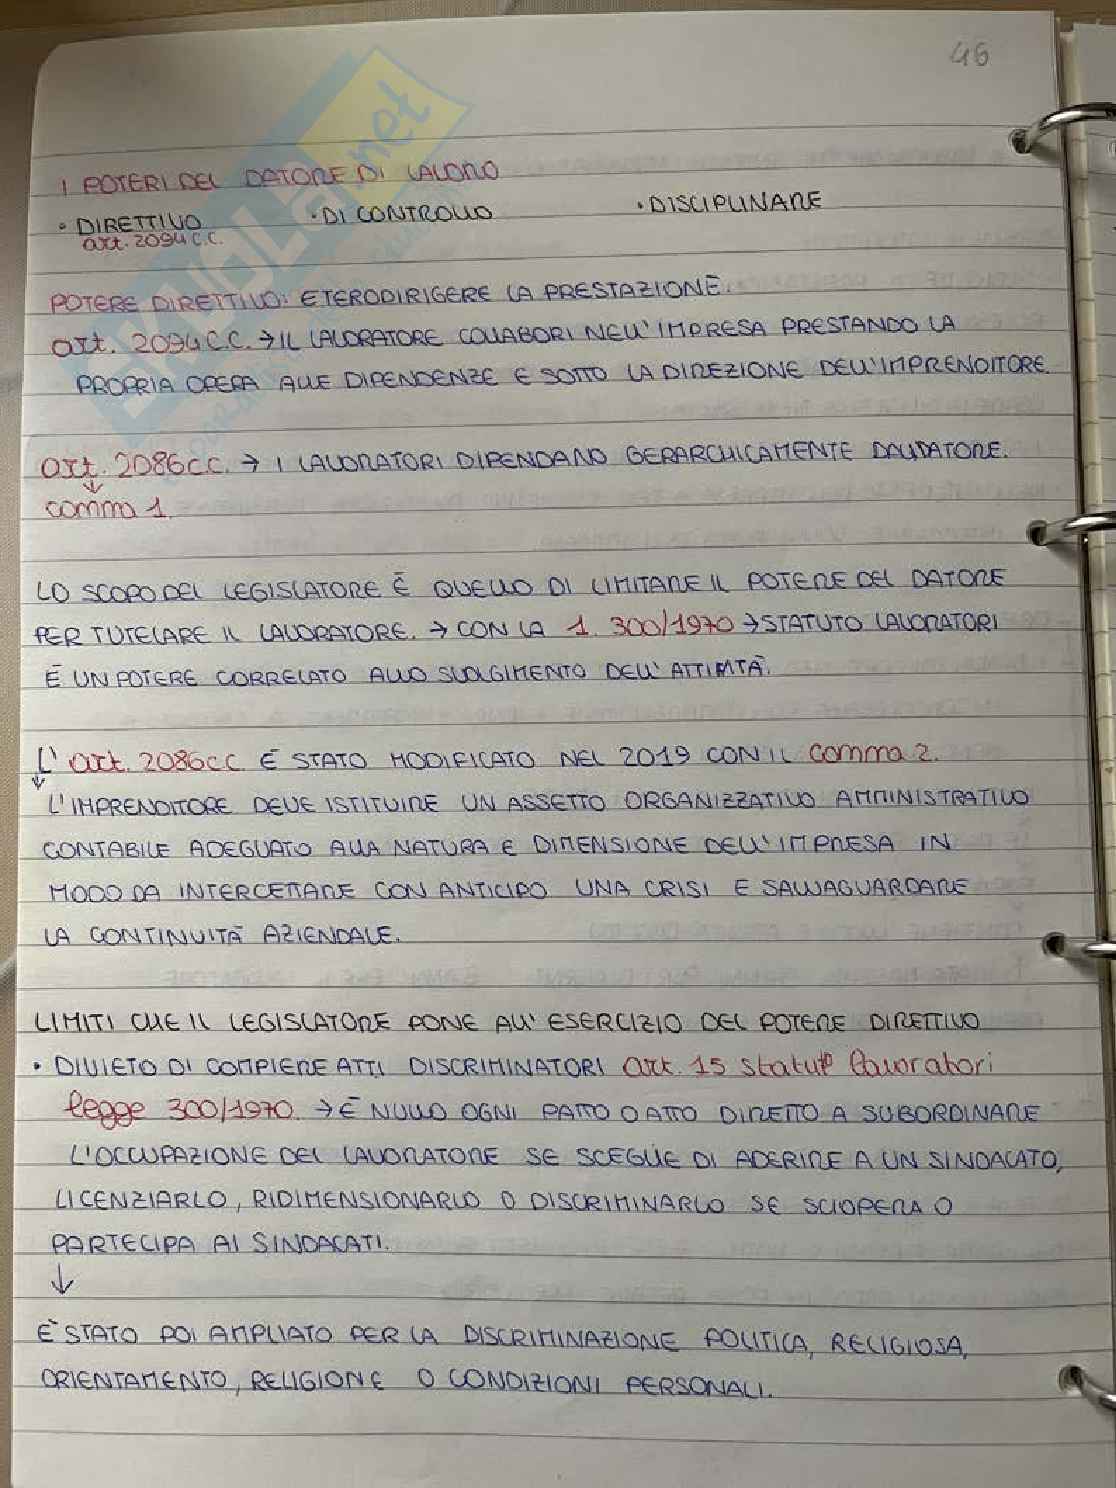 46
I POTERI DEL DATORE DI LAVORO
• DIRETTIVO • DI CONTROLLO • DISCIPLINARE
art. 2094 c.c.
POTERE DIRETTIVO: ETERODIRIGERE LA PRESTAZIONE.
art. 2094 C.C. → IL LAVORATORE COLLABORI NELL'IMPRESA PRESTANDO LA
PROPRIA OPERA ALLE DIPENDENZE E SOTTO LA DIREZIONE DELL'IMPRENDITORE.
art. 2086 cc. → I LAVORATORI DIPENDANO GERARCHICAMENTE DAL DATORE.
↓
comma 1.
LO SCOPO DEL LEGISLATORE È QUELLO DI LIMITARE IL POTERE DEL DATORE
PER TUTELARE IL LAVORATORE. → CON LA l. 300/1970 → STATUTO LAVORATORI
È UN POTERE CORRELATO ALLO SVOLGIMENTO DELL'ATTIVITÀ.
L' art. 2086 cc. È STATO MODIFICATO NEL 2019 CON IL comma 2.
↓
L'IMPRENDITORE DEVE ISTITUIRE UN ASSETTO ORGANIZZATIVO AMMINISTRATIVO
CONTABILE ADEGUATO ALLA NATURA E DIMENSIONE DELL'IMPRESA IN
MODO DA INTERCETTARE CON ANTICIPO UNA CRISI E SALVAGUARDARE
LA CONTINUITÀ AZIENDALE.
LIMITI CHE IL LEGISLATORE PONE ALL'ESERCIZIO DEL POTERE DIRETTIVO
• DIVIETO DI COMPIERE ATTI DISCRIMINATORI art. 15 lavoratori
legge 300/1970. → È NULLO OGNI PATTO O ATTO DIRETTO A SUBORDINARE
L'OCCUPAZIONE DEL LAVORATORE SE SCEGLIE DI ADERIRE A UN SINDACATO,
LICENZIARLO, RIDIMENSIONARLO O DISCRIMINARLO SE SCIOPERA O
PARTECIPA AI SINDACATI.
↓
È STATO POI AMPLIATO PER LA DISCRIMINAZIONE POLITICA, RELIGIOSA,
ORIENTAMENTO, RELIGIONE O CONDIZIONI PERSONALI.